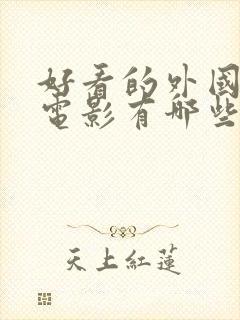 好看的外國
電影有哪些
天上紅蓮